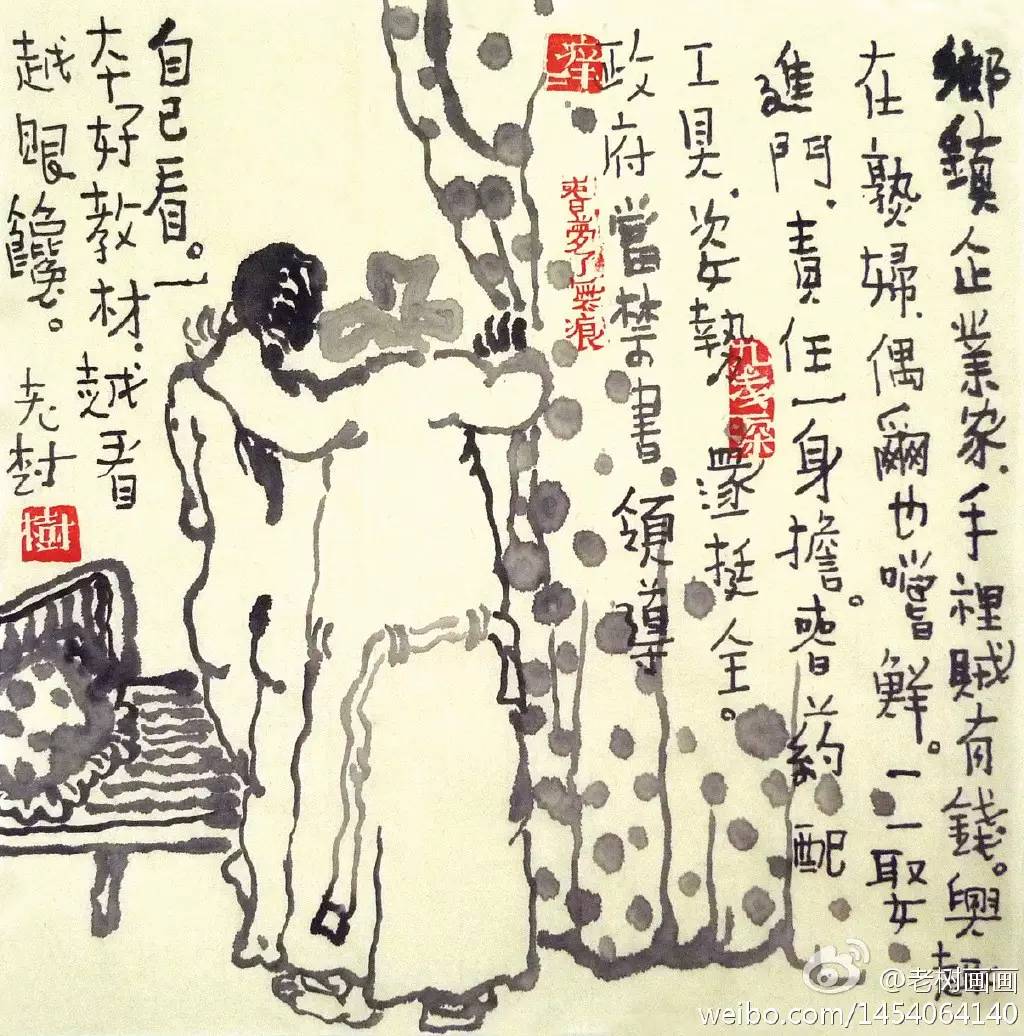 鄉鎮企业家.手裡贼有錢。興趣
在熟婦.偶爾也嚐鮮。一一娶
進門.責任一身擔。春药配
工具.姿執遂挺全。
政府當禁書.領導
自已看。一
本好教材.越看
越眼饞。老树
樹
春夢了無痕
@老树画画
weibo.com/1454064140